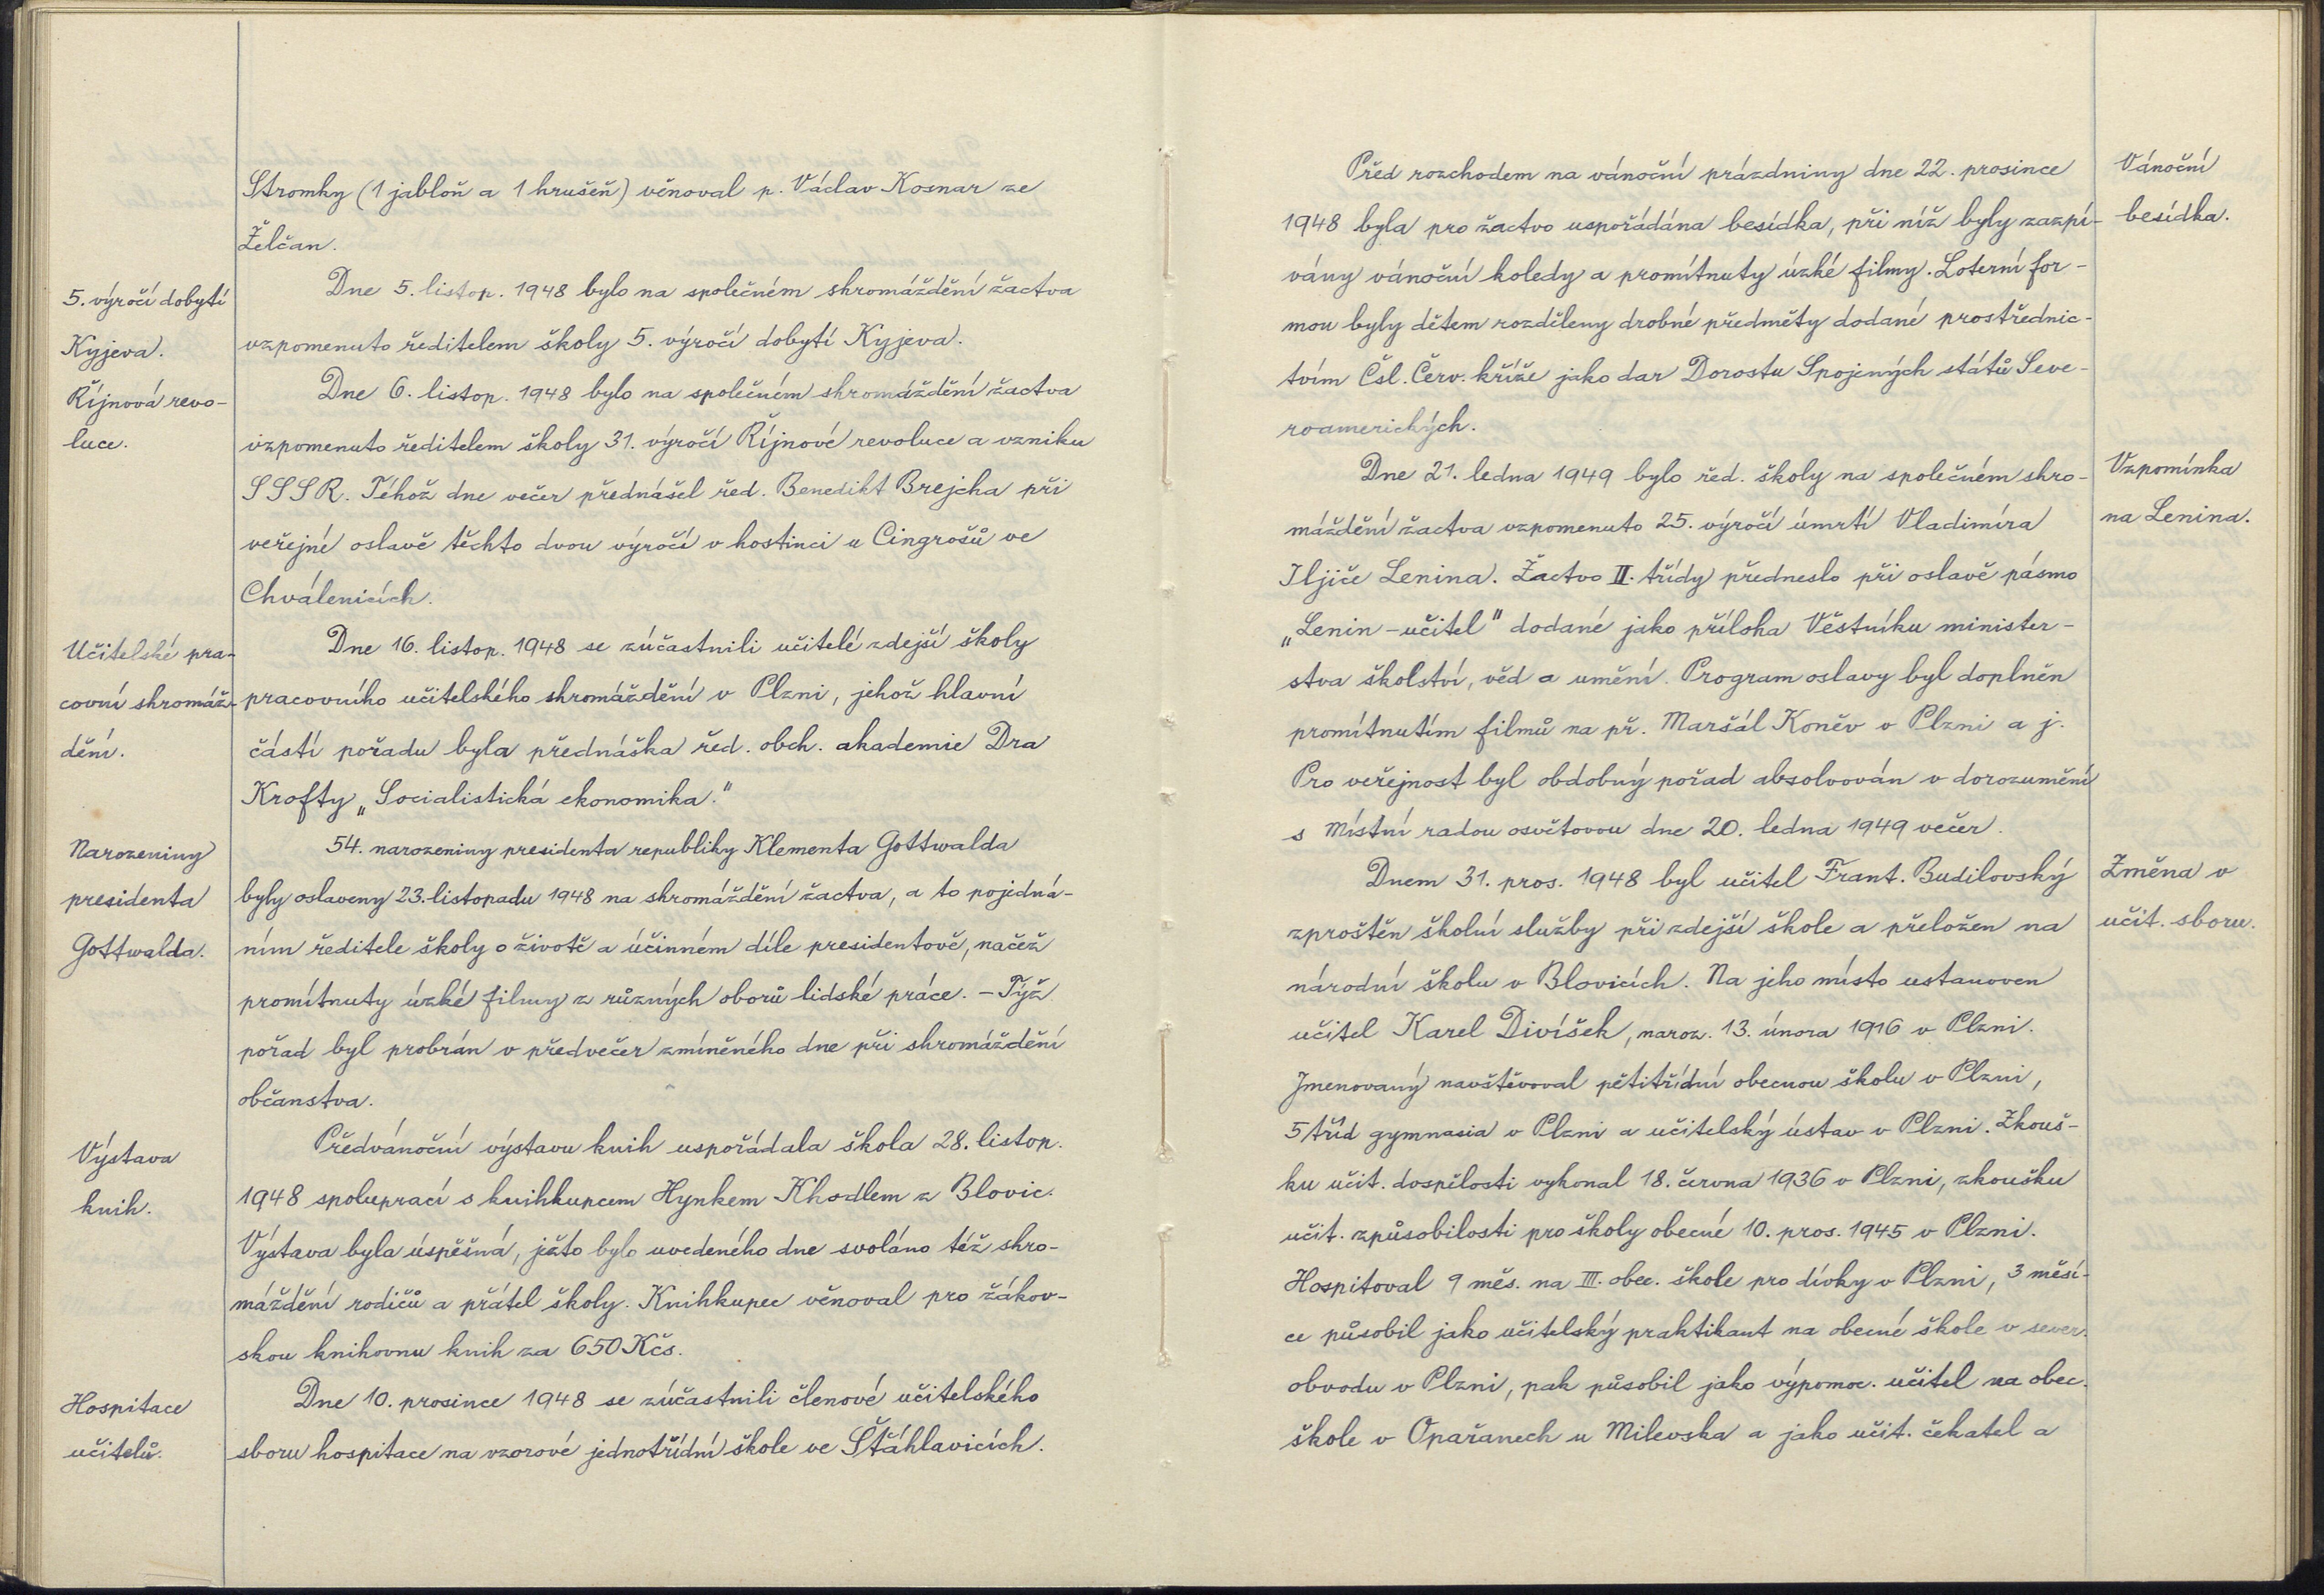 Stromky (1 jabloň a 1 hrušeň) věnoval p. Václav Kosnar ze
Želčan.
5. výročí dobytí
Kyjeva.
Dne 5. listop. 1948 bylo na společném shromáždění žactva
vzpomenuto ředitelem školy 5. výročí dobytí Kyjeva.
Říjnová revo-
luce.
Dne 6. listop. 1948 bylo na společném shromáždění žactva
vzpomenuto ředitelem školy 31. výročí Říjnové revoluce a vzniku
SSSR. Téhož dne večer přednášel řed. Benedikt Brejcha při
veřejné oslavě těchto dvou výročí v hostinci u Cingrošů ve
Chválenicích.
Učitelské pra-
covní shromáž-
dění.
Dne 16. listop. 1948 se zúčastnili učitelé zdejší školy
pracovního učitelského shromáždění v Plzni, jehož hlavní
částí pořadu byla přednáška řed. obch. akademie Dra
Krofty „Socialistická ekonomika."
Narozeniny
presidenta
Gottwalda.
54. narozeniny presidenta republiky Klementa Gottwalda
byly oslaveny 23. listopadu 1948 na shromáždění žactva, a to pojedná-
ním ředitele školy o životě a účinném díle presidentově, načež
promítnuty úzké filmy z různých oborů lidské práce. – Týž
pořad byl probrán v předvečer zmíněného dne při shromáždění
občanstva.
Výstava
knih.
Předvánoční výstavu knih uspořádala škola 28. listop.
1948 spoluprací s knihkupcem Hynkem Khodlem z Blovic.
Výstava byla úspěšná, ježto bylo uvedeného dne svoláno též shro-
máždění rodičů a přátel školy. Knihkupec věnoval pro žákov-
skou knihovnu knih za 650 Kčs.
Hospitace
učitelů.
Dne 10. prosince 1948 se zúčastnili členové učitelského
sboru hospitace na vzorové jednotřídní škole ve Štáhlavicích.
Vánoční
besídka.
Před rozchodem na vánoční prázdniny dne 22. prosince
1948 byla pro žactvo uspořádána besídka, při níž byly zazpí-
vány vánoční koledy a promítnuty úzké filmy. Loterní for-
mou byly dětem rozděleny drobné předměty dodané prostřednic-
tvím Čsl. Červ. kříže jako dar Dorostu Spojených států Seve-
roamerických.
Vzpomínka
na Lenina.
Dne 21. ledna 1949 bylo řed. školy na společném shro-
máždění žactva vzpomenuto 25. výročí úmrtí Vladimíra
Iljiče Lenina. Žactvo II. třídy předneslo při oslavě pásmo
„Lenin – učitel" dodané jako příloha Věstníku minister-
stva školství, věd a umění. Program oslavy byl doplněn
promítnutím filmů na př. Maršál Koněv v Plzni a j.
Pro veřejnost byl obdobný pořad absolvován v dorozumění
s Místní radou osvětovou dne 20. ledna 1949 večer.
Změna v
učit. sboru.
Dnem 31. pros. 1948 byl učitel Frant. Budilovský
zproštěn školní služby při zdejší škole a přeložen na
národní školu v Blovicích. Na jeho místo ustanoven
učitel Karel Divíšek, naroz. 13. února 1916 v Plzni.
Jmenovaný navštěvoval pětitřídní obecnou školu v Plzni,
5 tříd gymnasia v Plzni a učitelský ústav v Plzni. Zkouš-
ku učit. dospělosti vykonal 18. června 1936 v Plzni, zkoušku
učit. způsobilosti pro školy obecné 10. pros. 1945 v Plzni.
Hospitoval 9 měs. na III. obec. škole pro dívky v Plzni, 3 měsí-
ce působil jako učitelský praktikant na obecné škole v sever.
obvodu v Plzni, pak působil jako výpomoc. učitel na obec.
škole v Opařanech u Milevska a jako učit. čekatel a